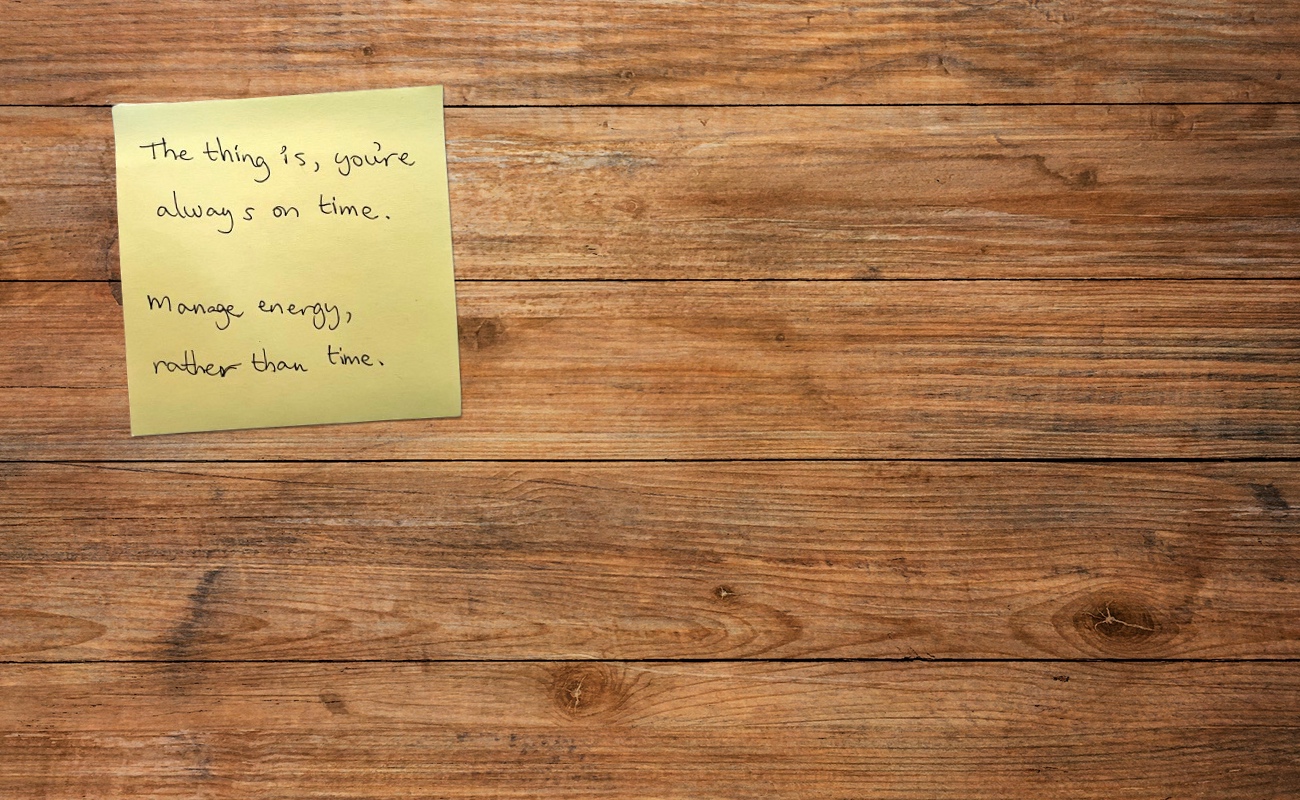 The thing is, you're
always on time.
Manage energy,
rather than time.